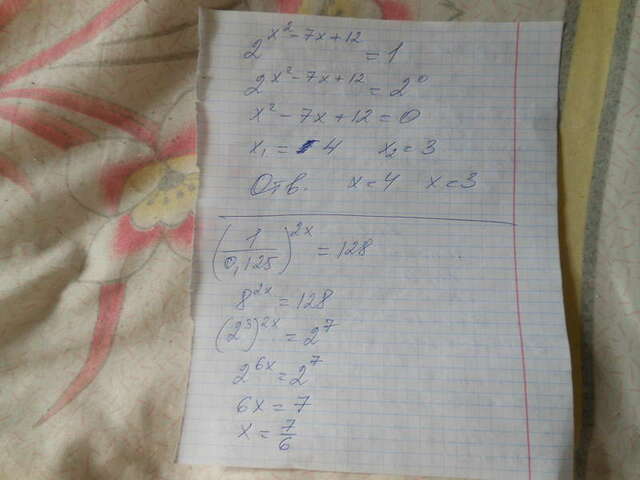 2^{x²-7x+12} = 1
2^{x²-7x+12} = 2⁰
x²-7x+12=0
x₁ = 4 x₂ = 3
Отв. x=4 x=3
(1/0,125)^{2x} = 128
8^{2x} = 128
(2³)^{2x} = 2⁷
2^{6x} = 2⁷
6x = 7
x = 7/6